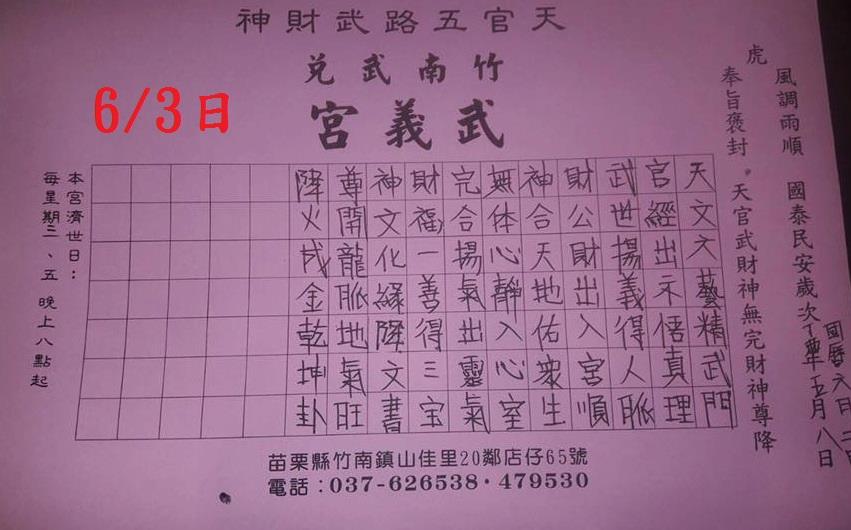 天官五路武財神
竹南武兌
武義宮
6/3日
風調雨順 國泰民安歲次年五月八日
虎
奉旨褒封。天官武財神無完財神尊降
天文文藝精武門
官經出不悟真理
武世揚義得人脈
財公財出入宮順
神合天地佑衆生
無体心靜入心室
完合揚氣出靈氣
財福一善得三宝
神文化緣降文書
尊開龍脈地氣旺
降火成金乾坤卦
本宮濟世日：
每星期三、五 晚上八點起
苗栗縣竹南鎮山佳里20鄰店仔65號
電話：037-626538·479530